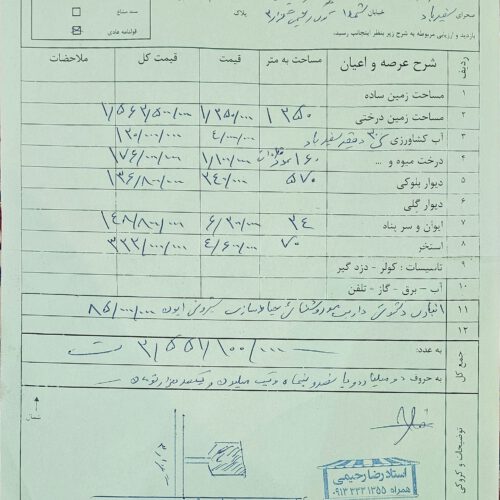 صحرای سفید باد خیابان شمالا پلاک
سند مشاع
قولنامه عادی
بازدید و ارزیابی مربوطه به شرح زیر بنظر اینجانب رسید.
ردیف شرح عرصه و اعیان مساحت به متر قیمت قیمت کل ملاحضات
۱ مساحت زمین ساده
۲ مساحت زمین درختی ۱۲۵۰ ۱/۲۵۰/۰۰۰ ۱/۵۶۲/۵۰۰/۰۰۰
۳ آب کشاورزی ۳۰ دقیقه سفید باد ۴/۰۰۰/۰۰۰ ۱۲۰/۰۰۰/۰۰۰
۴ درخت میوه و ... ۱۶۰ ۱/۱۰۰/۰۰۰ ۱۷۶/۰۰۰/۰۰۰
۵ دیوار بلوکی ۵۷۰ ۲۴۰/۰۰۰ ۱۳۶/۸۰۰/۰۰۰
۶ دیوار گلی
۷ ایوان و سر پناه ۲۴ ۶/۲۰۰/۰۰۰ ۱۴۸/۸۰۰/۰۰۰
۸ استخر ۷۰ ۴/۶۰۰/۰۰۰ ۳۲۲/۰۰۰/۰۰۰
۹ تاسیسات : کولر - دزد گیر
۱۰ آب – برق - گاز - تلفن
۱۱ انباری دستشوئی ایوان ۸۵/۰۰۰/۰۰۰
۱۲
جمع کل
به عدد: ۲/۵۵۱/۱۰۰/۰۰۰ ت
به حروف: دو میلیارد و پانصد و پنجاه و یک میلیون و یکصد هزار تومان
شمال
توضیحات و کروکی
استاد رضا رحیمی
همراه ۱۳۵۵ ۳۳۲ ۰۹۱۳